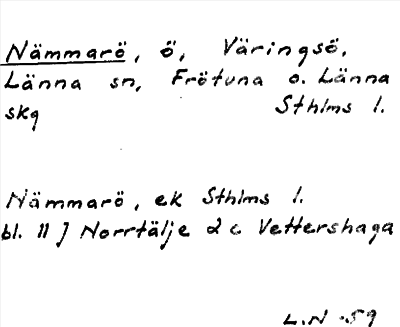 Nämmarö, ö, Väringsö,
Länna sn, Frötuna o. Länna
skg Sthlms l.
Nämmarö, ek Sthlms l.
bl. 11 J Norrtälje 2 c Vettershaga
L.N -59